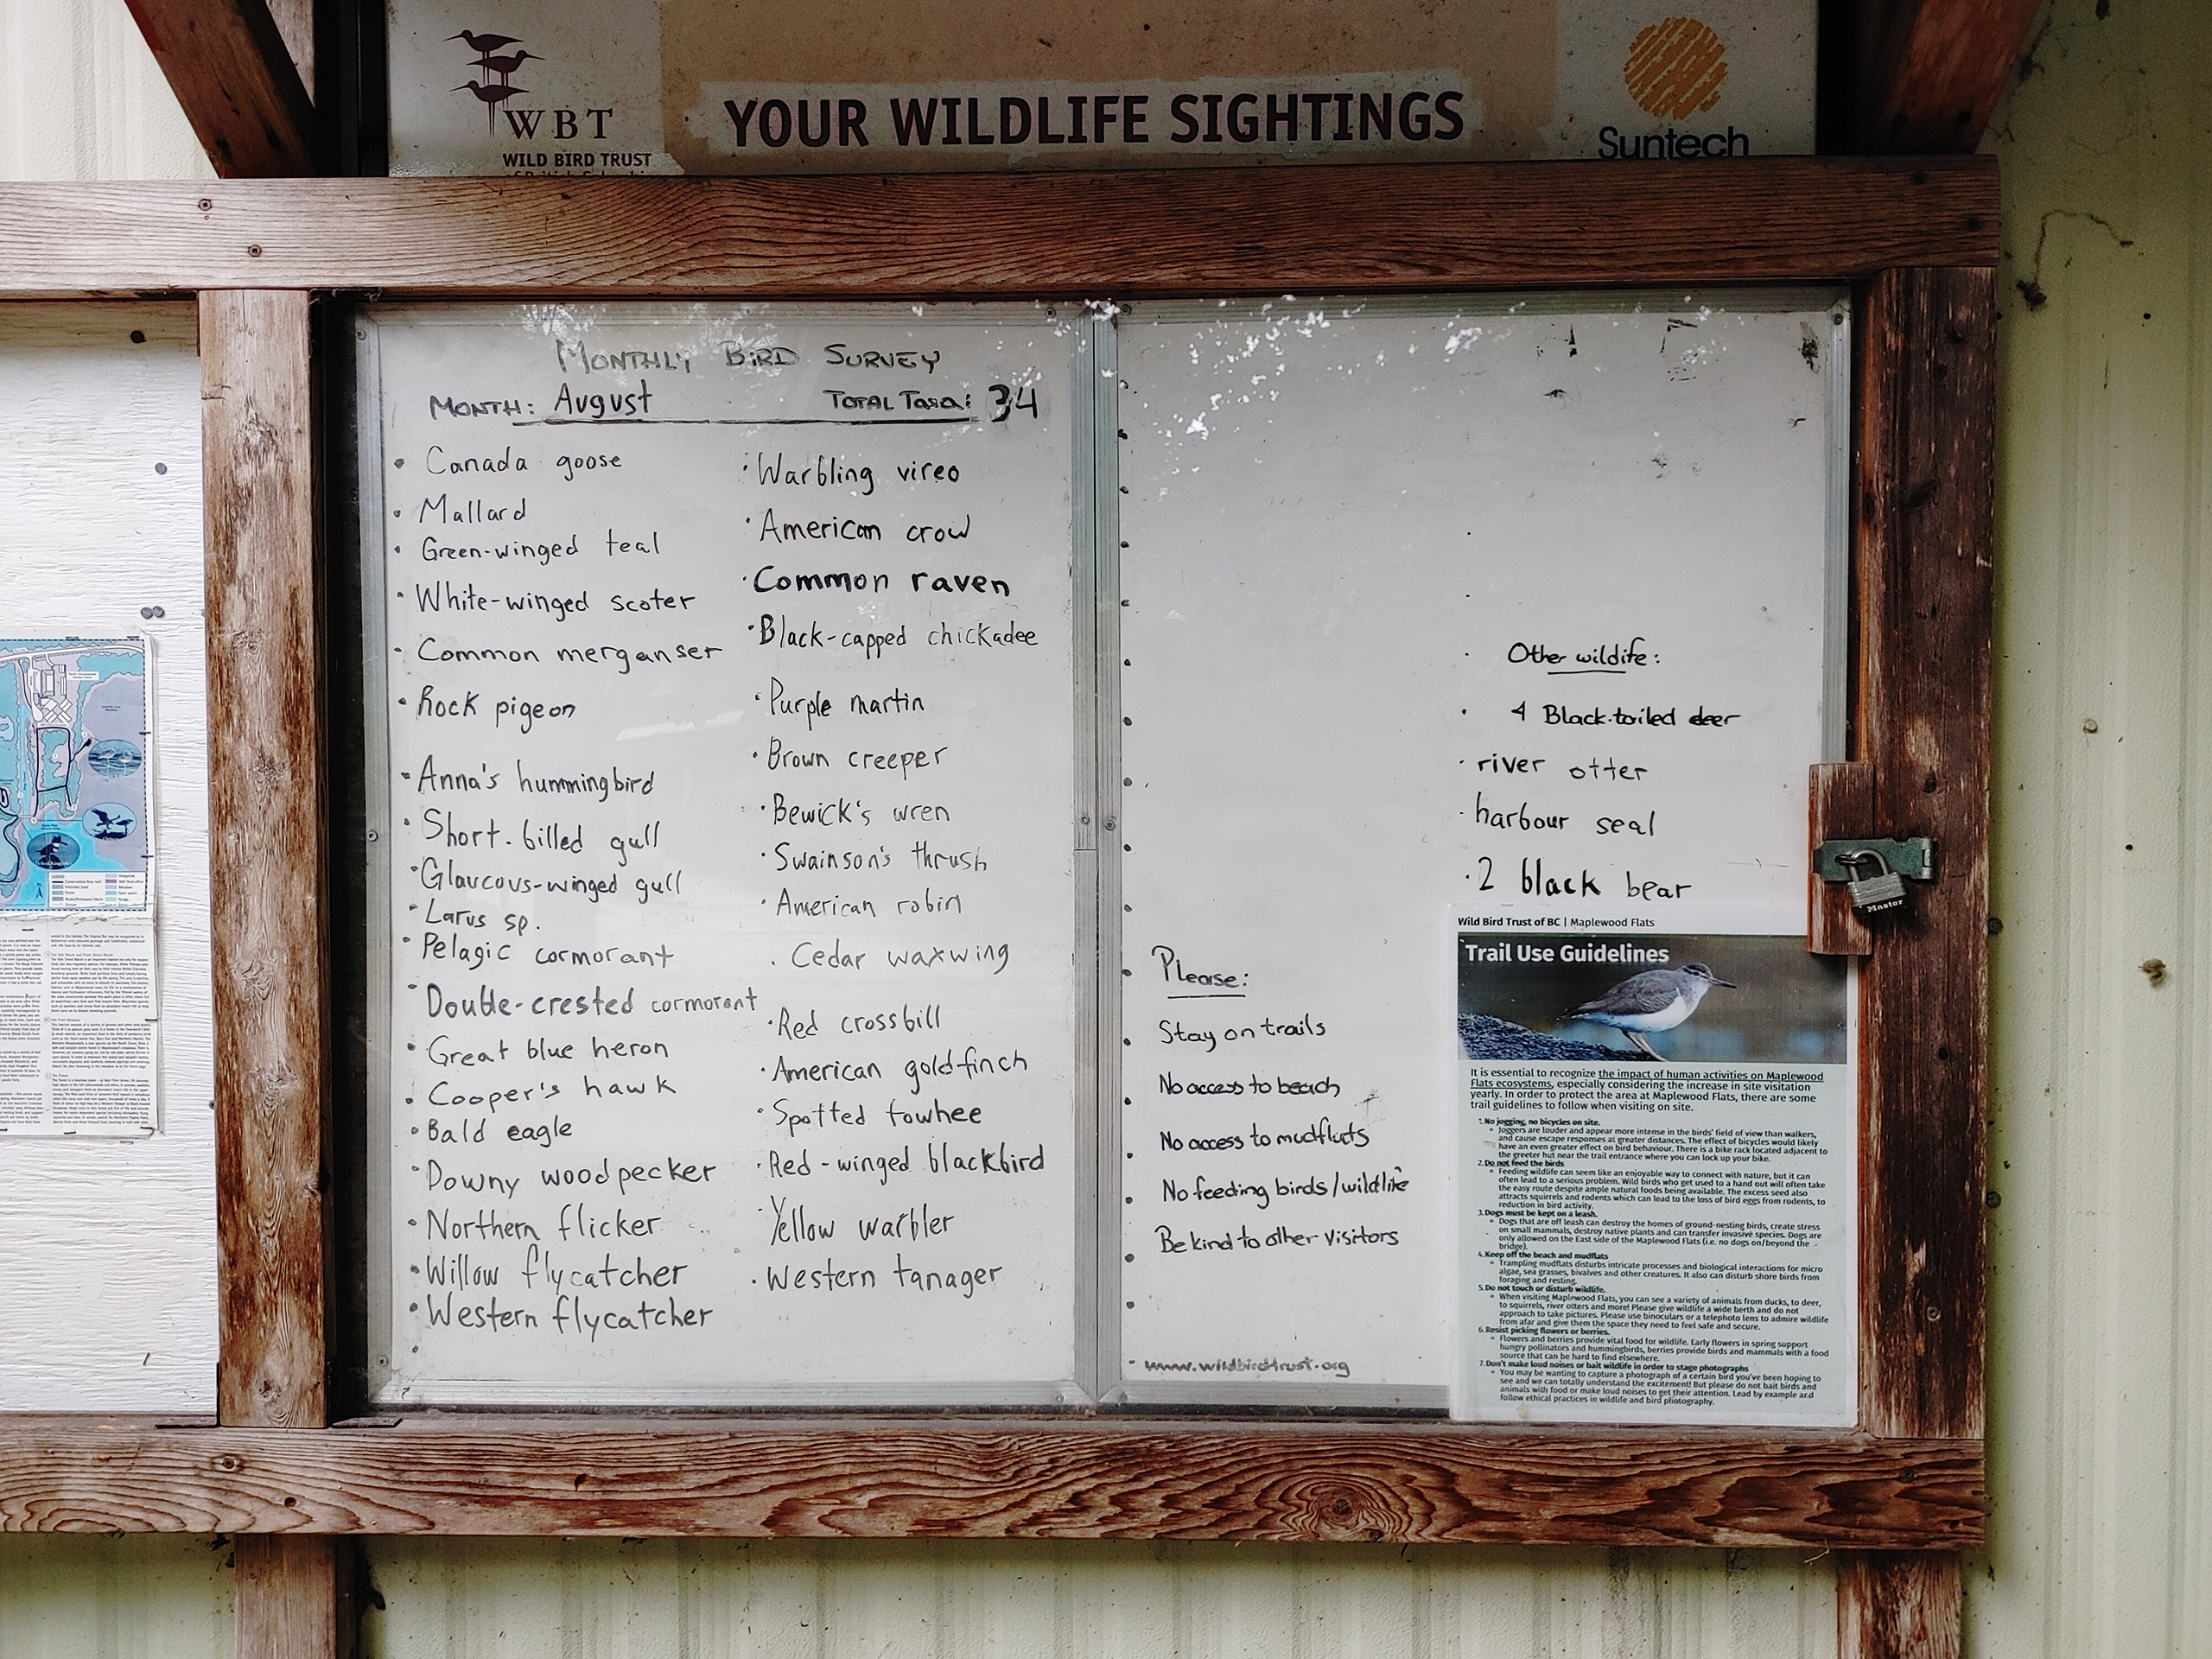 WBT
WILD BIRD TRUST
YOUR WILDLIFE SIGHTINGS
Suntech
MONTHLY BIRD SURVEY
MONTH: August TOTAL Taxa: 34
• Canada goose
• Mallard
• Green-winged teal
• White-winged scoter
• Common merganser
• Rock pigeon
• Anna's hummingbird
• Short-billed gull
• Glaucous-winged gull
• Larus sp.
• Pelagic cormorant
• Double-crested cormorant
• Great blue heron
• Cooper's hawk
• Bald eagle
• Downy woodpecker
• Northern flicker
• Willow flycatcher
• Western flycatcher
• Warbling vireo
• American crow
• Common raven
• Black-capped chickadee
• Purple martin
• Brown creeper
• Bewick's wren
• Swainson's thrush
• American robin
• Cedar waxwing
• Red crossbill
• American goldfinch
• Spotted towhee
• Red-winged blackbird
• Yellow warbler
• Western tanager
Please:
Stay on trails
No access to beach
No access to mudflats
No feeding birds/wildlife
Be kind to other visitors
www.wildbirdtrust.org
Other wildife:
• 4 Black-tailed deer
• river otter
• harbour seal
• 2 black bear
Wild Bird Trust of BC | Maplewood Flats
Trail Use Guidelines
It is essential to recognize the impact of human activities on Maplewood
Flats ecosystems, especially considering the increase in site visitation
yearly. In order to protect the area at Maplewood Flats, there are some
trail guidelines to follow when visiting on site.
1. No jogging, no bicycles on site.
Joggers are louder and appear more intense in the birds' field of view than walkers,
and cause escape responses at greater distances. The effect of bicycles would likely
have an even greater effect on bird behaviour. There is a bike rack located adjacent to
the greeter hut near the trail entrance where you can lock up your bike.
2. Do not feed the birds
Feeding wildlife can seem like an enjoyable way to connect with nature, but it can
often lead to a serious problem. Wild birds who get used to a hand out will often take
the easy route despite ample natural foods being available. The excess seed also
attracts squirrels and rodents which can lead to the loss of bird eggs from rodents, to
reduction in bird activity.
3. Dogs must be kept on a leash.
Dogs that are off leash can destroy the homes of ground-nesting birds, create stress
on small mammals, destroy native plants and can transfer invasive species. Dogs are
only allowed on the East side of the Maplewood Flats (i.e. no dogs on/beyond the
bridge).
4. Keep off the beach and mudflats
Trampling mudflats disturbs intricate processes and biological interactions for micro
algae, sea grasses, bivalves and other creatures. It also can disturb shore birds from
foraging and resting.
5. Do not touch or disturb wildlife.
When visiting Maplewood Flats, you can see a variety of animals from ducks, to deer,
to squirrels, river otters and more! Please give wildlife a wide berth and do not
approach to take pictures. Please use binoculars or a telephoto lens to admire wildlife
from afar and give them the space they need to feel safe and secure.
6. Resist picking flowers or berries.
Flowers and berries provide vital food for wildlife. Early flowers in spring support
hungry pollinators and hummingbirds, berries provide birds and mammals with a food
source that can be hard to find elsewhere.
7. Don't make loud noises or bait wildlife in order to stage photographs
You may be wanting to capture a photograph of a certain bird you've been hoping to
see and we can totally understand the excitement! But please do not bait birds and
animals with food or make loud noises to get their attention. Lead by example and
follow ethical practices in wildlife and bird photography.
Master